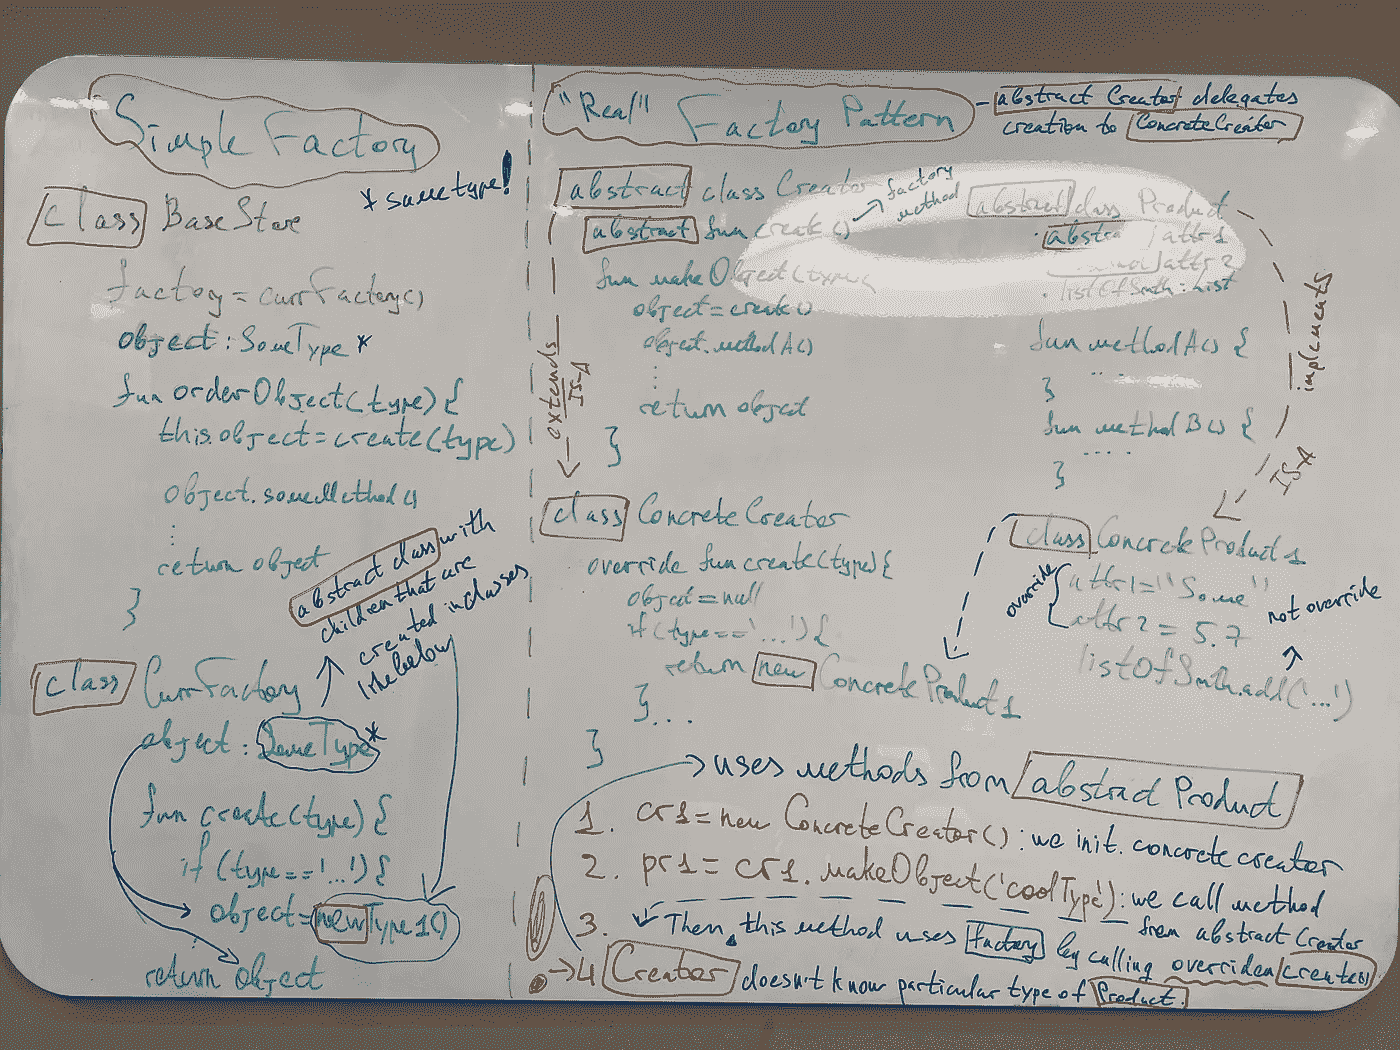 Simple Factory
* same type!
class BaseStore
factory = currFactory()
object : SomeType *
fun orderObject(type) {
this.object = create(type)
object.someMethod()
⋮
return object
}
abstract class with
children that are
created in classes
like below
class CurrFactory
object : SomeType*
fun create(type) {
if (type == '...') {
object = new Type1()
return object
"Real" Factory Pattern
- abstract Creator delegates
creation to ConcreteCreator
abstract class Creator
abstract fun create()
factory
method
fun makeObject(type) {
object = create()
object.methodA()
⋮
return object
}
extends
IS-A
abstract class Product
. abstract attr1
attr2
. listOfSmth : list
fun methodA() {
....
}
fun methodB() {
....
}
implements
IS-A
class ConcreteCreator
override fun create(type) {
object = null
if (type == '...') {
return new ConcreteProduct1
} ...
}
class ConcreteProduct1
override { attr1 = "Some"
attr2 = 5.7
not override
listOfSmth.add('...')
uses methods from abstract Product
1. cr1 = new ConcreteCreator() : we init. concrete creator
2. pr1 = cr1.makeObject('coolType') : we call method
from abstract Creator
3. Then, this method uses factory by calling overriden create()
4 Creator doesn't know particular type of Product.